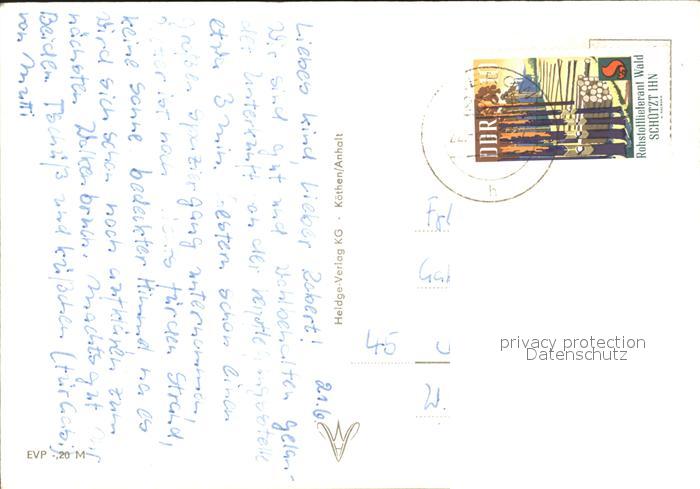 Liebes Kind, lieber Eckert! 21.6.
Wir sind gut und wohlbehalten gelan-
der Unterkunft an der
etwa 3 min. Gestern schon einen
großen Spaziergang unternommen,
leider ist noch für den Strand,
keine Sonne bedeckter Himmel na es
wird sich schon noch aufklären zum
nächsten Wochenende. Machts gut Ihr
Beiden Tschüß und Küßchen (für
von Mutti
Heldge-Verlag KG · Köthen/Anhalt
EVP -,20 M
DDR
Rohstofflieferant Wald
SCHÜTZT IHN
h
45
privacy protection
Datenschutz